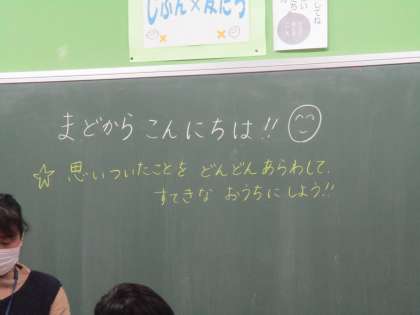 じぶん×友だち
まどから こんにちは!!
☆ 思いついたことを どんどんあらわして、
すてきな おうちにしよう!!